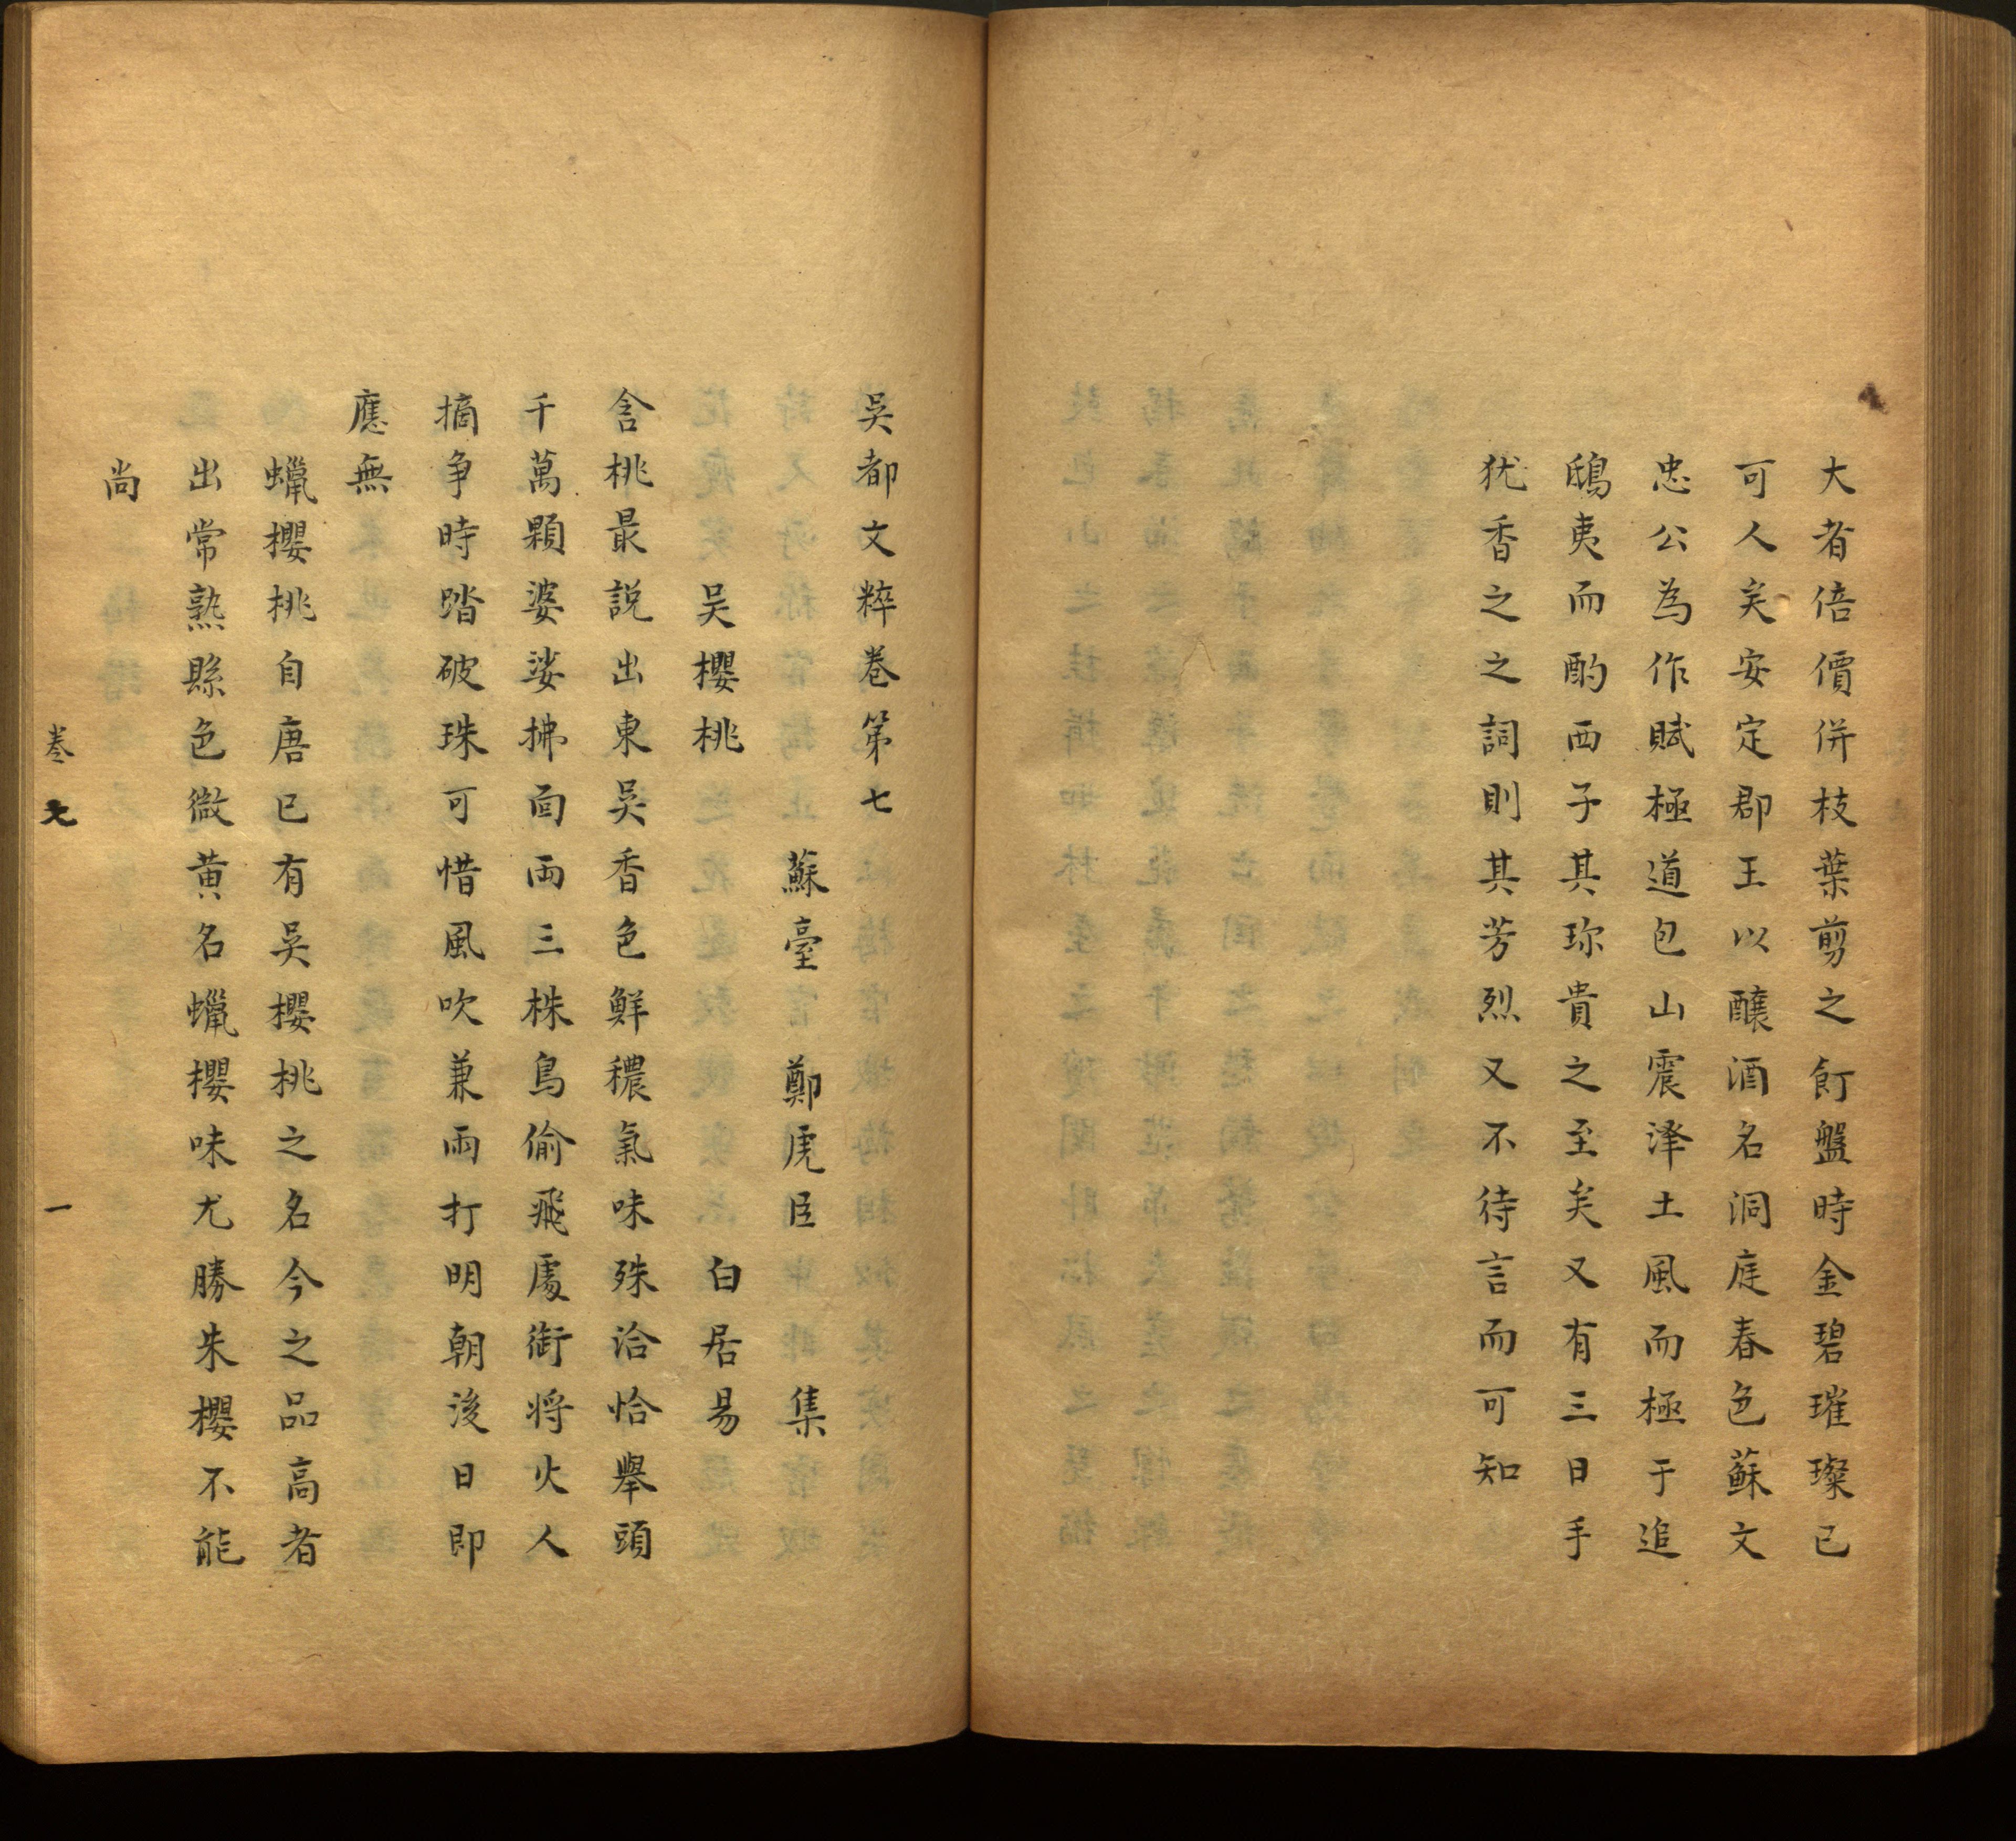 大者倍價併枝葉剪之飣盤時金碧璀璨已
可人矣安定郡王以釀酒名洞庭春色蘇文
忠公為作賦極道包山震泽土風而極于追
鴟夷而酌西子其珎貴之至矣又有三日手
犹香之之詞則其芳烈又不待言而可知
吳都文粹卷第七
蘇臺 鄭虎臣 集
吴櫻桃 白居易
含桃最説出東吳香色鮮穠氣味殊洽恰舉頭
千萬顆婆娑拂面両三株鳥偷飛處銜将火人
摘争時踏破珠可惜風吹兼雨打明朝後日即
應無
蠟櫻桃自唐已有吳櫻桃之名今之品高者
出常熟縣色微黄名蠟櫻味尤勝朱櫻不能
尚
卷七
一